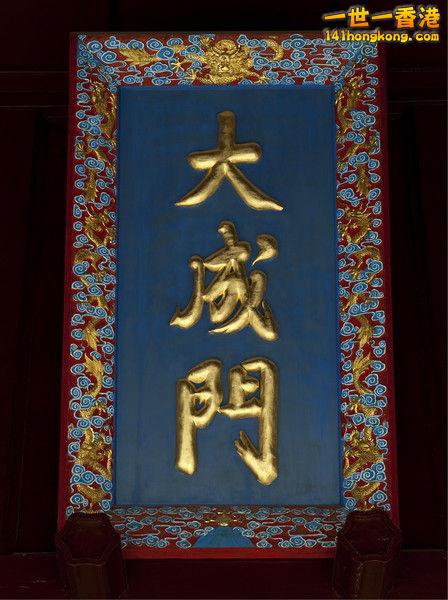 一世一香港
141hongkong.com
大成門